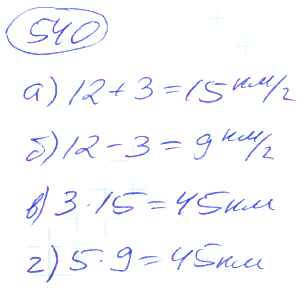 540
а) 12 + 3 = 15 км/г
б) 12 - 3 = 9 км/г
в) 3 · 15 = 45 км
г) 5 · 9 = 45 км